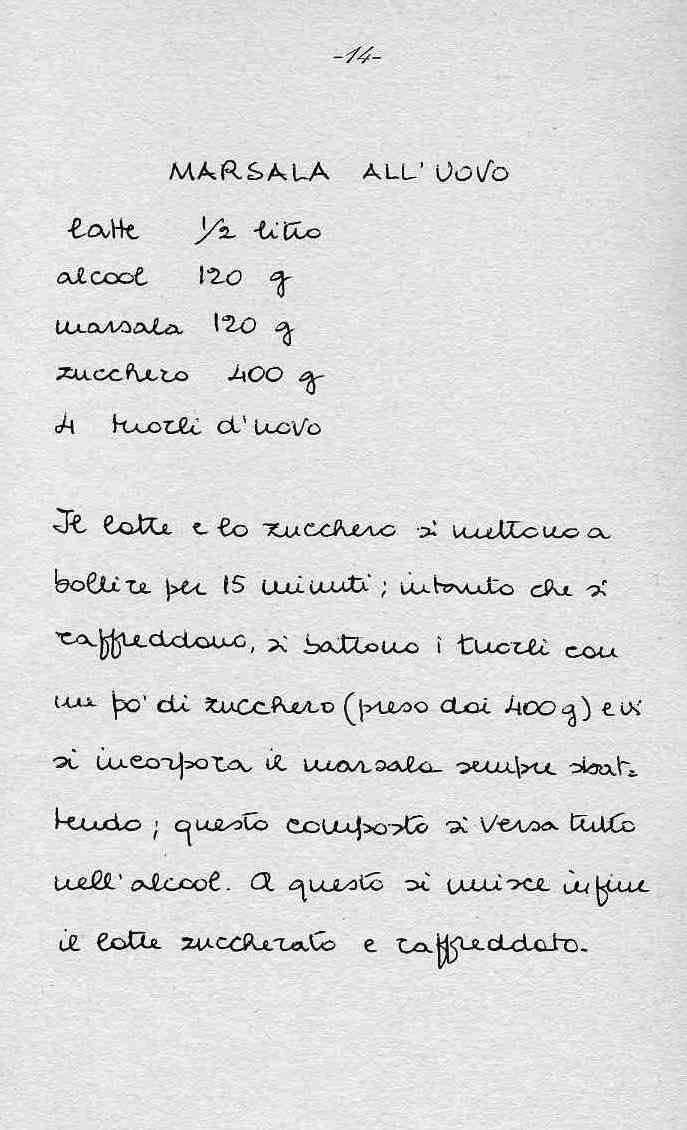 -14-
MARSALA ALL'UOVO
latte 1/2 litro
alcool 120 g
marsala 120 g
zucchero 400 g
4 tuorli d'uovo
Il latte e lo zucchero si mettono a
bollire per 15 minuti; intanto che si
raffreddono, si battono i tuorli con
un po' di zucchero (preso dai 400 g) e vi
si incorpora il marsala sempre sbat=
tendo; questo composto si versa tutto
nell'alcool. A questo si unisce infine
il latte zuccherato e raffreddato.